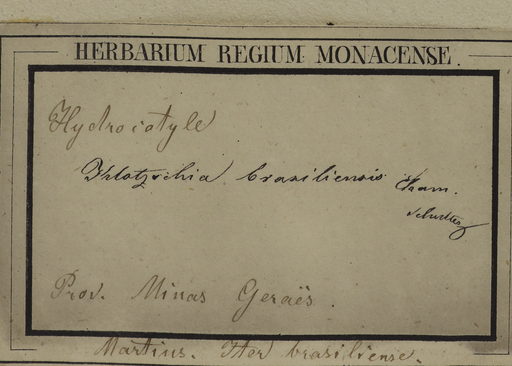 HERBARIUM REGIUM MONACENSE.
Hydrocotyle
Klotzschia brasiliensis Cham.
Prov. Minas Geraës.
Martius. Iter brasiliense.